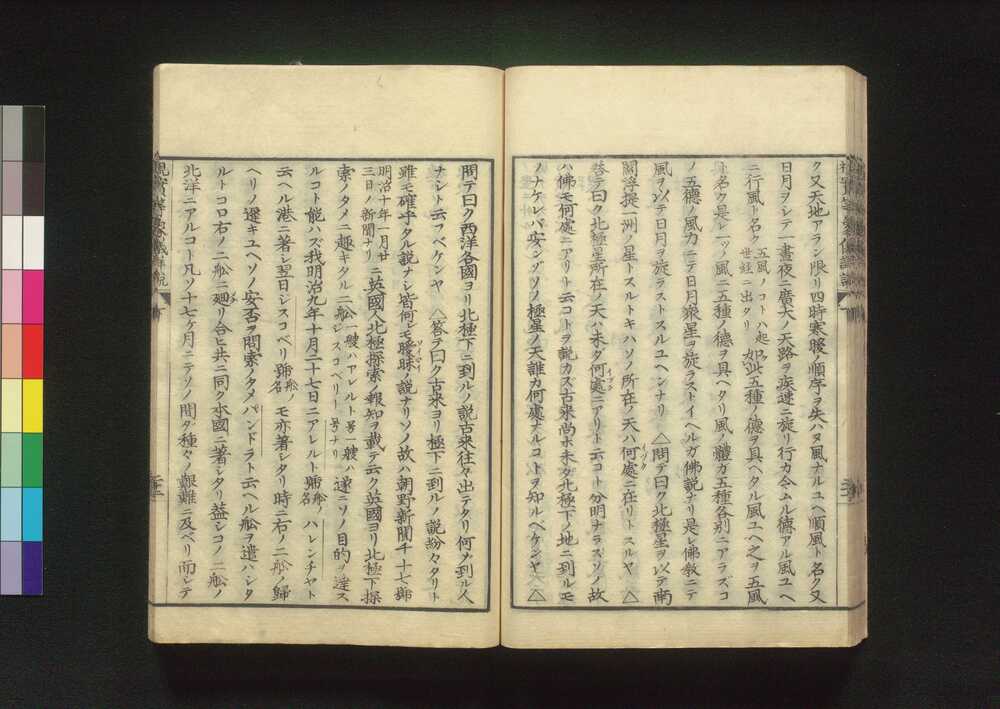 ク又天地アラン限リ四時寒暖ノ順序ヲ失ハヌ風ナルユヘ順風ト名ク又
日月ヲシテ一晝夜ニ廣大ノ天路ヲ疾速ニ旋リ行カ令ムル徳アル風ユヘ
ニ行風ト名ク 五風ノコトハ起世經ニ出タリ 如此五種ノ徳ヲ具ヘタル風ユヘ之ヲ五風
ト名ク是レ一ツノ風ニ五種ノ徳ヲ具ヘタリ風ノ體ガ五種各別ニアラズコ
ノ五徳ノ風力ニテ日月衆星ヲ旋ラストイヘルガ佛説ナリ是レ佛敎ニテ
風ヲ以テ日月ヲ旋ラストスルユヘンナリ △問テ曰ク北極星ヲ以テ南
閻浮提一洲ノ星トスルトキハソノ所在ノ天ハ何處ニ在リトスルヤ △
答テ曰ク北極星所在ノ天ハ未タ何處ニアリト云コト分明ナラスソノ故
ハ佛モ何處ニアリト云コトヲ説カス古來尚ホ未タ北極下ノ地ニ到ルモ
ノナケレバ安ンゾソノ極星ノ天誰カ何處ナルコトヲ知ルベケンヤ △
問テ曰ク西洋各國ヨリ北極下ニ到ルノ説古來往々出テタリ何ゾ到ル人
ナシト云フベケンヤ △答テ曰ク古來ヨリ極下ニ到ルノ説紛々タリト
雖モ確乎タル説ナシ皆何レモ曖昧ノ説ナリソノ故ハ朝野新聞千十七號
明治十年一月廿三日ノ新聞ナリ ニ英國人北極探索ノ報知ヲ載テ云ク英國ヨリ北極下探
索ノタメニ趣キタル二舩 一艘ハアレルト号一艘ハジスコベリー号ナリ ハ遂ニソノ目的ヲ達ス
ルコト能ハズ我明治九年十月二十七日ニアレルト 舩ノ名 ハレンチヤト
云ヘル港ニ著シ翌日ジスコベリ 舩ノ名 モ亦著シタリ時ニ右ノ二舩ノ歸
ヘリノ遲キユヘソノ安否ヲ問索ノタメパンドラト云ヘル舩ヲ遣ハシタ
ルトコロ右ノ二舩ニ廻リ合ヒ共ニ同ク本國ニ著シタリ葢シコノ二舩ノ
北洋ニアルコト凡ソ十七ケ月ニテソノ間タ種々ノ艱難ニ及ベリ而シテ